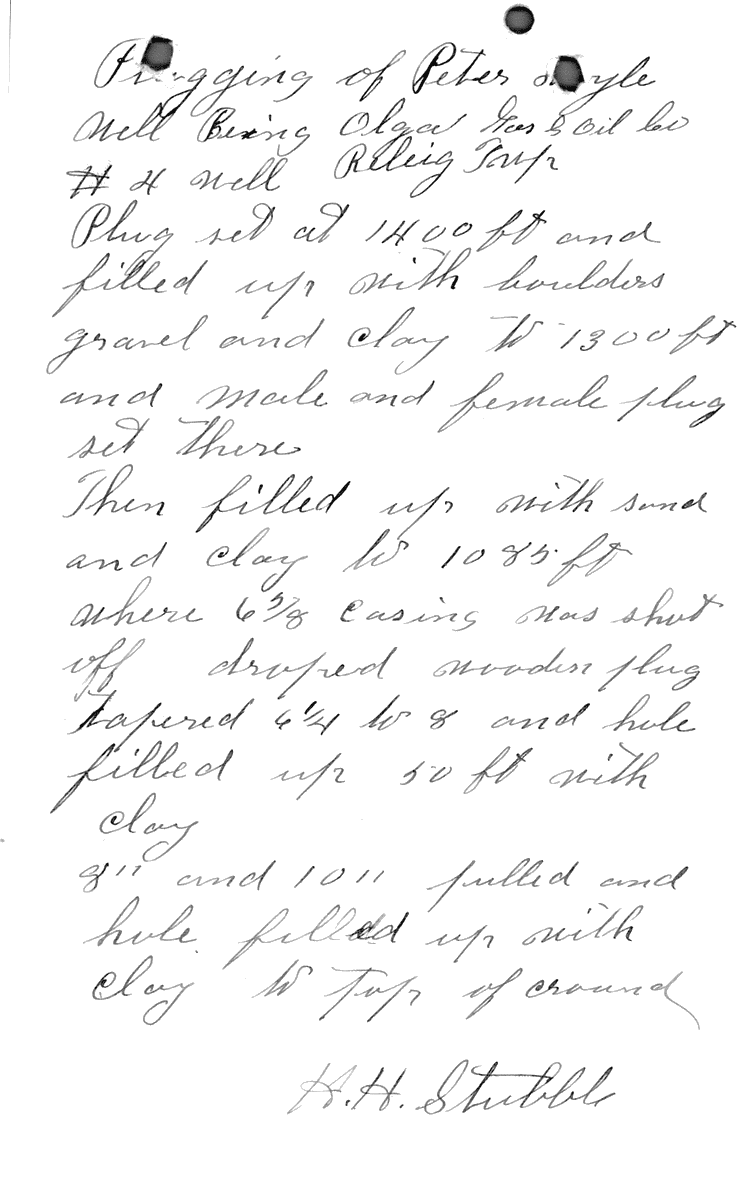 gging of Peter yle
Well Being Olga Gas & Oil Co
# 4 well Raleig Twp
Plug set at 1400 ft and
filled up with boulders
gravel and clay to 1300 ft
and male and female plug
set there
Then filled up with sand
and clay to 1085 ft
where 6 5/8 casing was shot
off droped wooden plug
tapered 6 1/4 to 8 and hole
filled up 50 ft with
clay
8" and 10" pulled and
hole filled up with
clay to top of cround
H.H. Stubbl